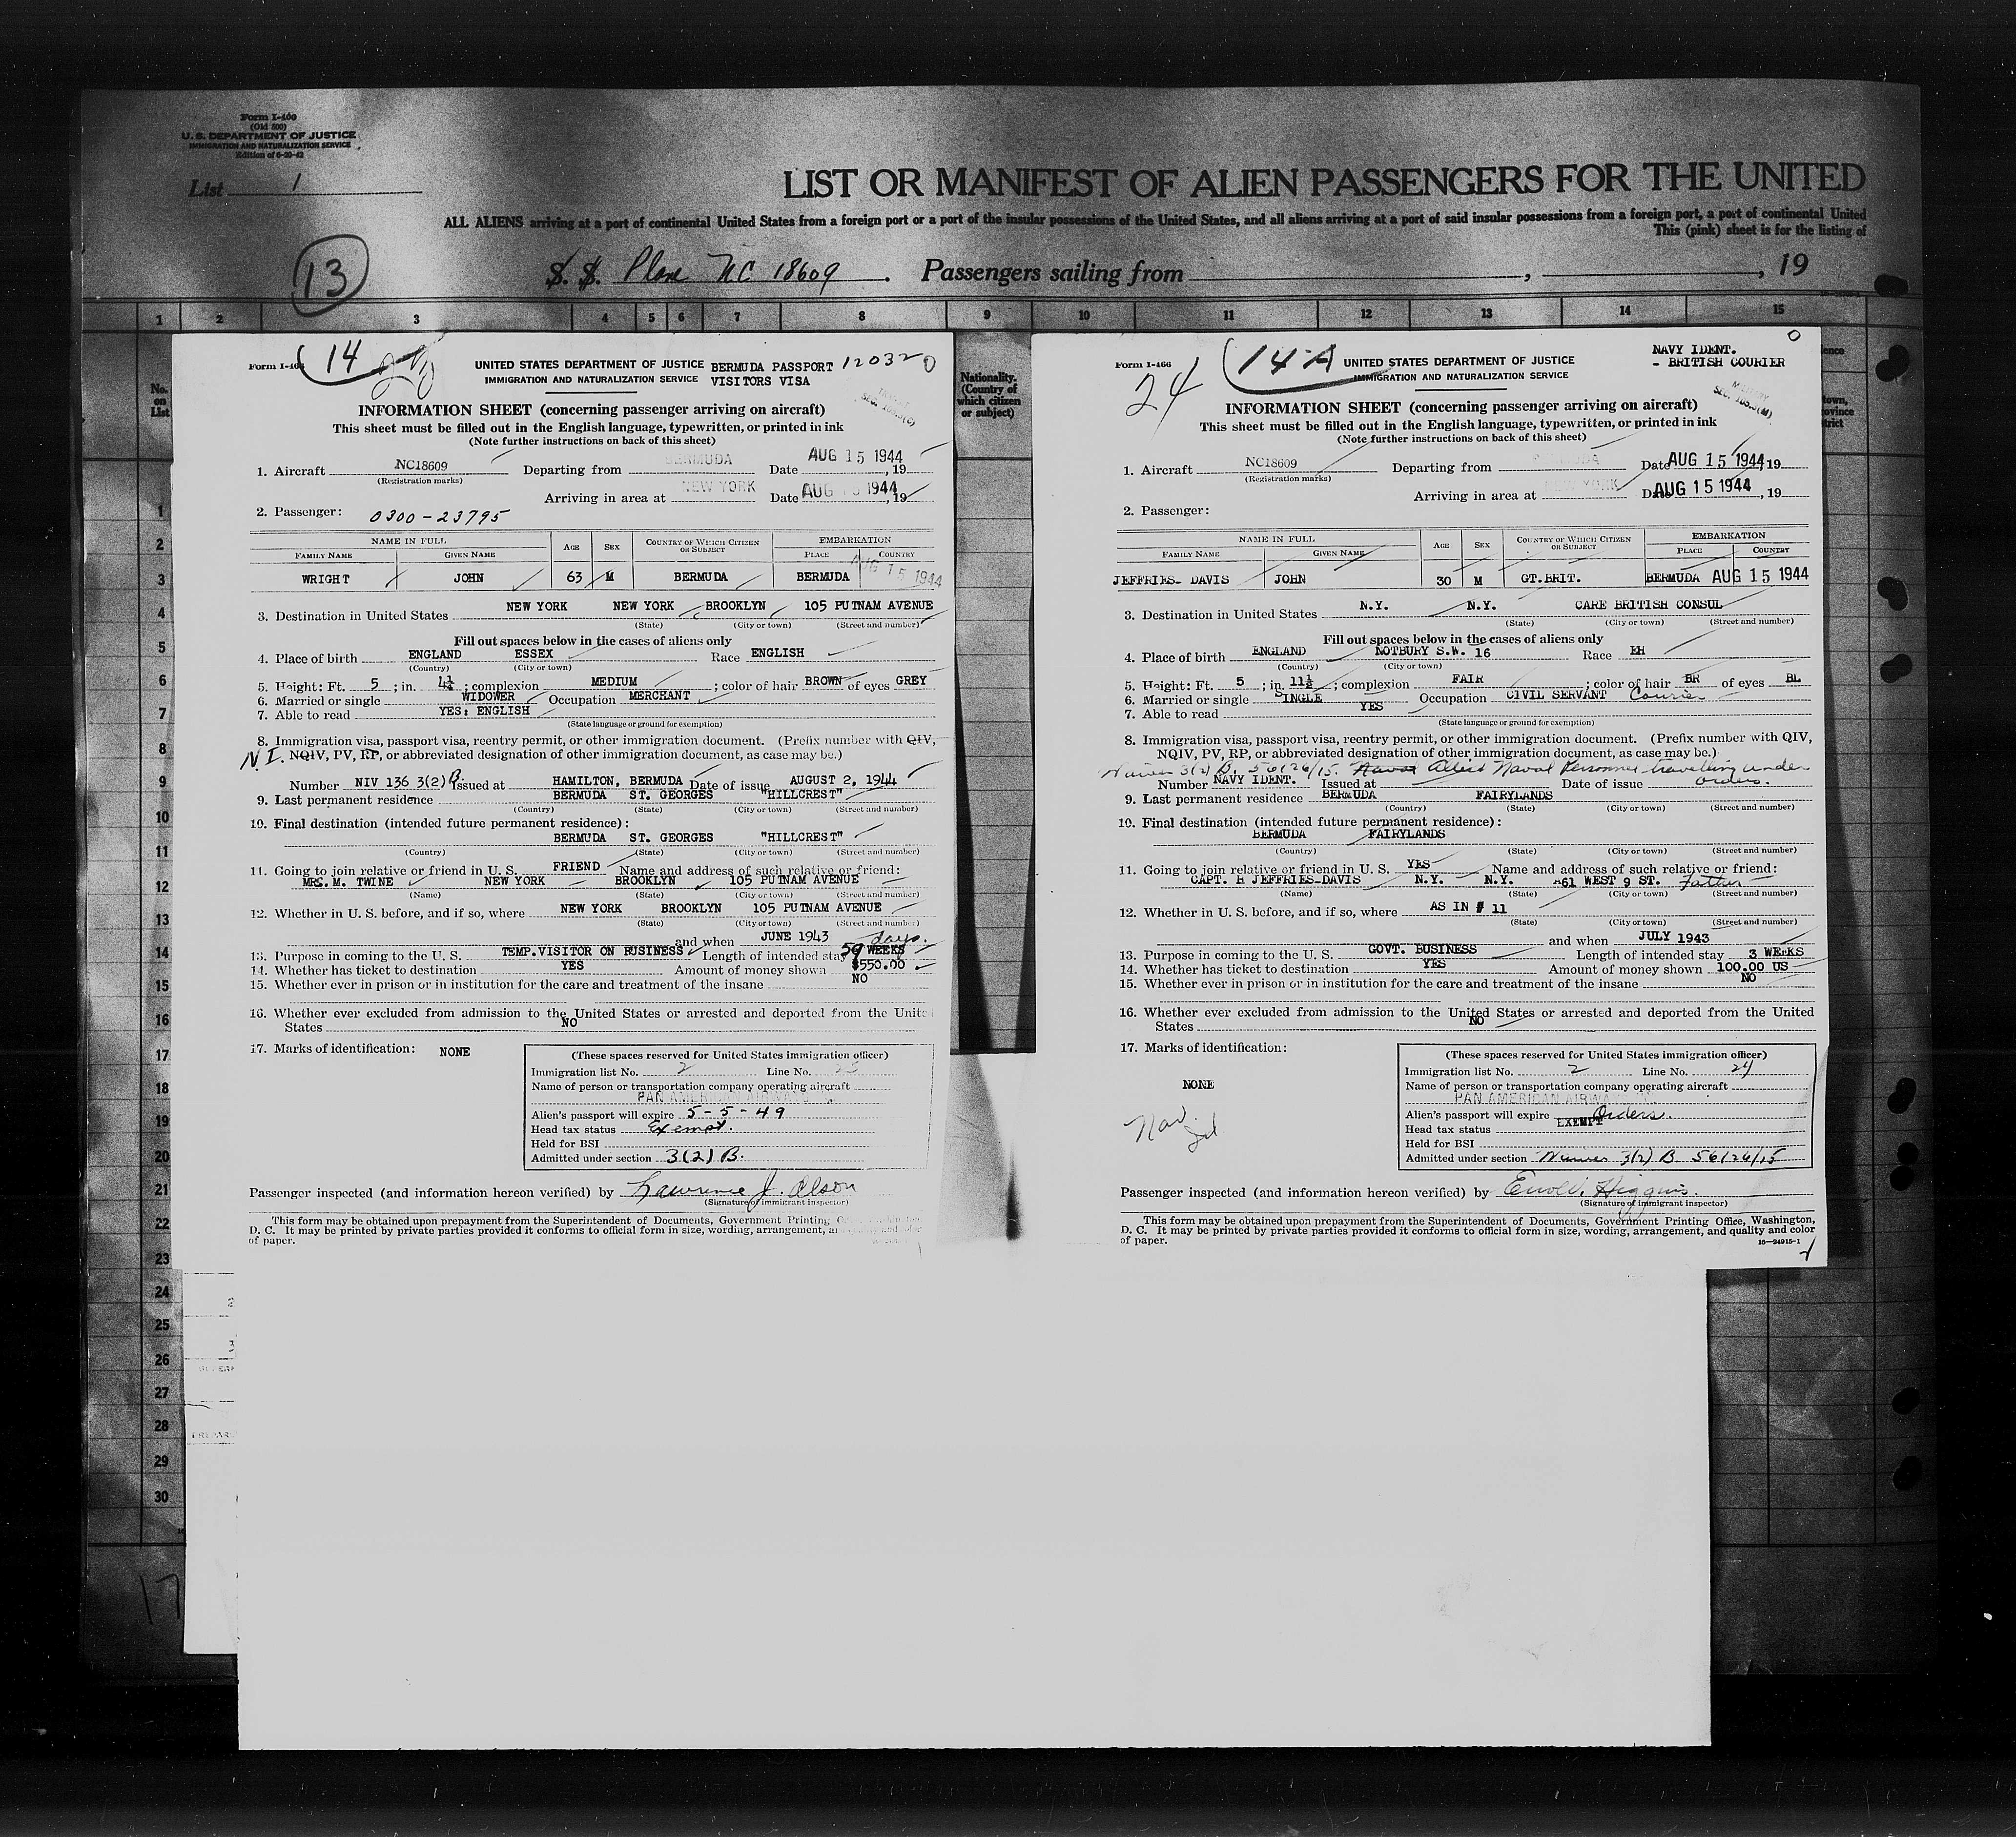 Form I-466
(Old 500)
U. S. DEPARTMENT OF JUSTICE
IMMIGRATION AND NATURALIZATION SERVICE
Edition of 6-20-42
List 1
LIST OR MANIFEST OF ALIEN PASSENGERS FOR THE UNITED
ALL ALIENS arriving at a port of continental United States from a foreign port or a port of the insular possessions of the United States, and all aliens arriving at a port of said insular possessions from a foreign port, a port of continental United
This (pink) sheet is for the listing of
13
S. S. Plane NC 18609. Passengers sailing from , , 19
1 2 3 4 5 6 7 8 9 10 11 12 13 14 15
No. on List
Nationality. (Country of which citizen or subject)
1
2
3
4
5
6
7
8
9
10
11
12
13
14
15
16
17
18
19
20
21
22
23
24
25
26
27
28
29
30
17
14
UNITED STATES DEPARTMENT OF JUSTICE BERMUDA PASSPORT 12032
IMMIGRATION AND NATURALIZATION SERVICE VISITORS VISA
INFORMATION SHEET (concerning passenger arriving on aircraft)
This sheet must be filled out in the English language, typewritten, or printed in ink
(Note further instructions on back of this sheet)
1. Aircraft NC18609 Departing from BERMUDA Date AUG 15 1944, 19
(Registration marks)
Arriving in area at NEW YORK Date AUG 15 1944, 19
2. Passenger: 0300-23795
NAME IN FULL AGE SEX COUNTRY OF WHICH CITIZEN OR SUBJECT EMBARKATION
FAMILY NAME GIVEN NAME PLACE COUNTRY
WRIGHT JOHN 63 M BERMUDA BERMUDA AUG 15 1944
3. Destination in United States NEW YORK NEW YORK BROOKLYN 105 PUTNAM AVENUE
(State) (City or town) (Street and number)
Fill out spaces below in the cases of aliens only
4. Place of birth ENGLAND ESSEX Race ENGLISH
(Country) (City or town)
5. Height: Ft. 5 ; in. 4½ ; complexion MEDIUM ; color of hair BROWN of eyes GREY
6. Married or single WIDOWER Occupation MERCHANT
7. Able to read YES: ENGLISH
(State language or ground for exemption)
8. Immigration visa, passport visa, reentry permit, or other immigration document. (Prefix number with QIV,
N.I. NQIV, PV, RP, or abbreviated designation of other immigration document, as case may be.)
Number NIV 136 3(2)B. Issued at HAMILTON, BERMUDA Date of issue AUGUST 2, 1944
9. Last permanent residence BERMUDA ST. GEORGES "HILLCREST"
(Country) (State) (City or town) (Street and number)
10. Final destination (intended future permanent residence):
BERMUDA ST. GEORGES "HILLCREST"
(Country) (State) (City or town) (Street and number)
11. Going to join relative or friend in U. S. FRIEND Name and address of such relative or friend:
MRS. M. TWINE NEW YORK BROOKLYN 105 PUTNAM AVENUE
(Name) (State) (City or town) (Street and number)
12. Whether in U. S. before, and if so, where NEW YORK BROOKLYN 105 PUTNAM AVENUE
(State) (City or town) (Street and number)
and when JUNE 1943 days.
13. Purpose in coming to the U. S. TEMP.VISITOR ON BUSINESS Length of intended stay 59 WEEKS
14. Whether has ticket to destination YES Amount of money shown $550.00
15. Whether ever in prison or in institution for the care and treatment of the insane NO
16. Whether ever excluded from admission to the United States or arrested and deported from the United
States NO
17. Marks of identification: NONE
(These spaces reserved for United States immigration officer)
Immigration list No. 2 Line No. 23
Name of person or transportation company operating aircraft
PAN AMERICAN AIRWAYS
Alien's passport will expire 5-5-49
Head tax status Exempt.
Held for BSI
Admitted under section 3(2) B.
Passenger inspected (and information hereon verified) by Lawrence J. Olson
(Signature of immigrant inspector)
This form may be obtained upon prepayment from the Superintendent of Documents, Government Printing
D. C. It may be printed by private parties provided it conforms to official form in size, wording, arrangement,
of paper.
Form I-466
24
14-A
UNITED STATES DEPARTMENT OF JUSTICE
IMMIGRATION AND NATURALIZATION SERVICE
NAVY IDENT.
- BRITISH COURIER
INFORMATION SHEET (concerning passenger arriving on aircraft)
This sheet must be filled out in the English language, typewritten, or printed in ink
(Note further instructions on back of this sheet)
1. Aircraft NC18609 Departing from BERMUDA Date AUG 15 1944 19
(Registration marks)
Arriving in area at NEW YORK Date AUG 15 1944, 19
2. Passenger:
NAME IN FULL AGE SEX COUNTRY OF WHICH CITIZEN OR SUBJECT EMBARKATION
FAMILY NAME GIVEN NAME PLACE COUNTRY
JEFFRIES- DAVIS JOHN 30 M GT.BRIT. BERMUDA AUG 15 1944
3. Destination in United States N.Y. N.Y. CARE BRITISH CONSUL
(State) (City or town) (Street and number)
Fill out spaces below in the cases of aliens only
4. Place of birth ENGLAND NOTBURY S.W. 16 Race EH
(Country) (City or town)
5. Height: Ft. 5 ; in. 11½ ; complexion FAIR ; color of hair BR of eyes BL
6. Married or single SINGLE Occupation CIVIL SERVANT Courier
7. Able to read YES
(State language or ground for exemption)
8. Immigration visa, passport visa, reentry permit, or other immigration document. (Prefix number with QIV,
NQIV, PV, RP, or abbreviated designation of other immigration document, as case may be.)
Waiver 3(2) B. 56/26/15. Naval Allied Naval Personnel traveling under orders.
Number NAVY IDENT. Issued at Date of issue
9. Last permanent residence BERMUDA FAIRYLANDS
(Country) (State) (City or town) (Street and number)
10. Final destination (intended future permanent residence):
BERMUDA FAIRYLANDS
(Country) (State) (City or town) (Street and number)
11. Going to join relative or friend in U. S. YES Name and address of such relative or friend:
CAPT. H JEFFRIES-DAVIS N.Y. N.Y. 61 WEST 9 ST. Father
(Name) (State) (City or town) (Street and number)
12. Whether in U. S. before, and if so, where AS IN # 11
(State) (City or town) (Street and number)
and when JULY 1943
13. Purpose in coming to the U. S. GOVT. BUSINESS Length of intended stay 3 WEEKS
14. Whether has ticket to destination YES Amount of money shown 100.00 US
15. Whether ever in prison or in institution for the care and treatment of the insane NO
16. Whether ever excluded from admission to the United States or arrested and deported from the United
States NO
17. Marks of identification:
NONE
(These spaces reserved for United States immigration officer)
Immigration list No. 2 Line No. 24
Name of person or transportation company operating aircraft
PAN AMERICAN AIRWAYS
Alien's passport will expire Orders.
Head tax status EXEMPT
Held for BSI
Admitted under section Waiver 3(2) B 56/26/15
Passenger inspected (and information hereon verified) by Higgins.
(Signature of immigrant inspector)
This form may be obtained upon prepayment from the Superintendent of Documents, Government Printing Office, Washington,
D. C. It may be printed by private parties provided it conforms to official form in size, wording, arrangement, and quality and color
of paper. 16—24915-1